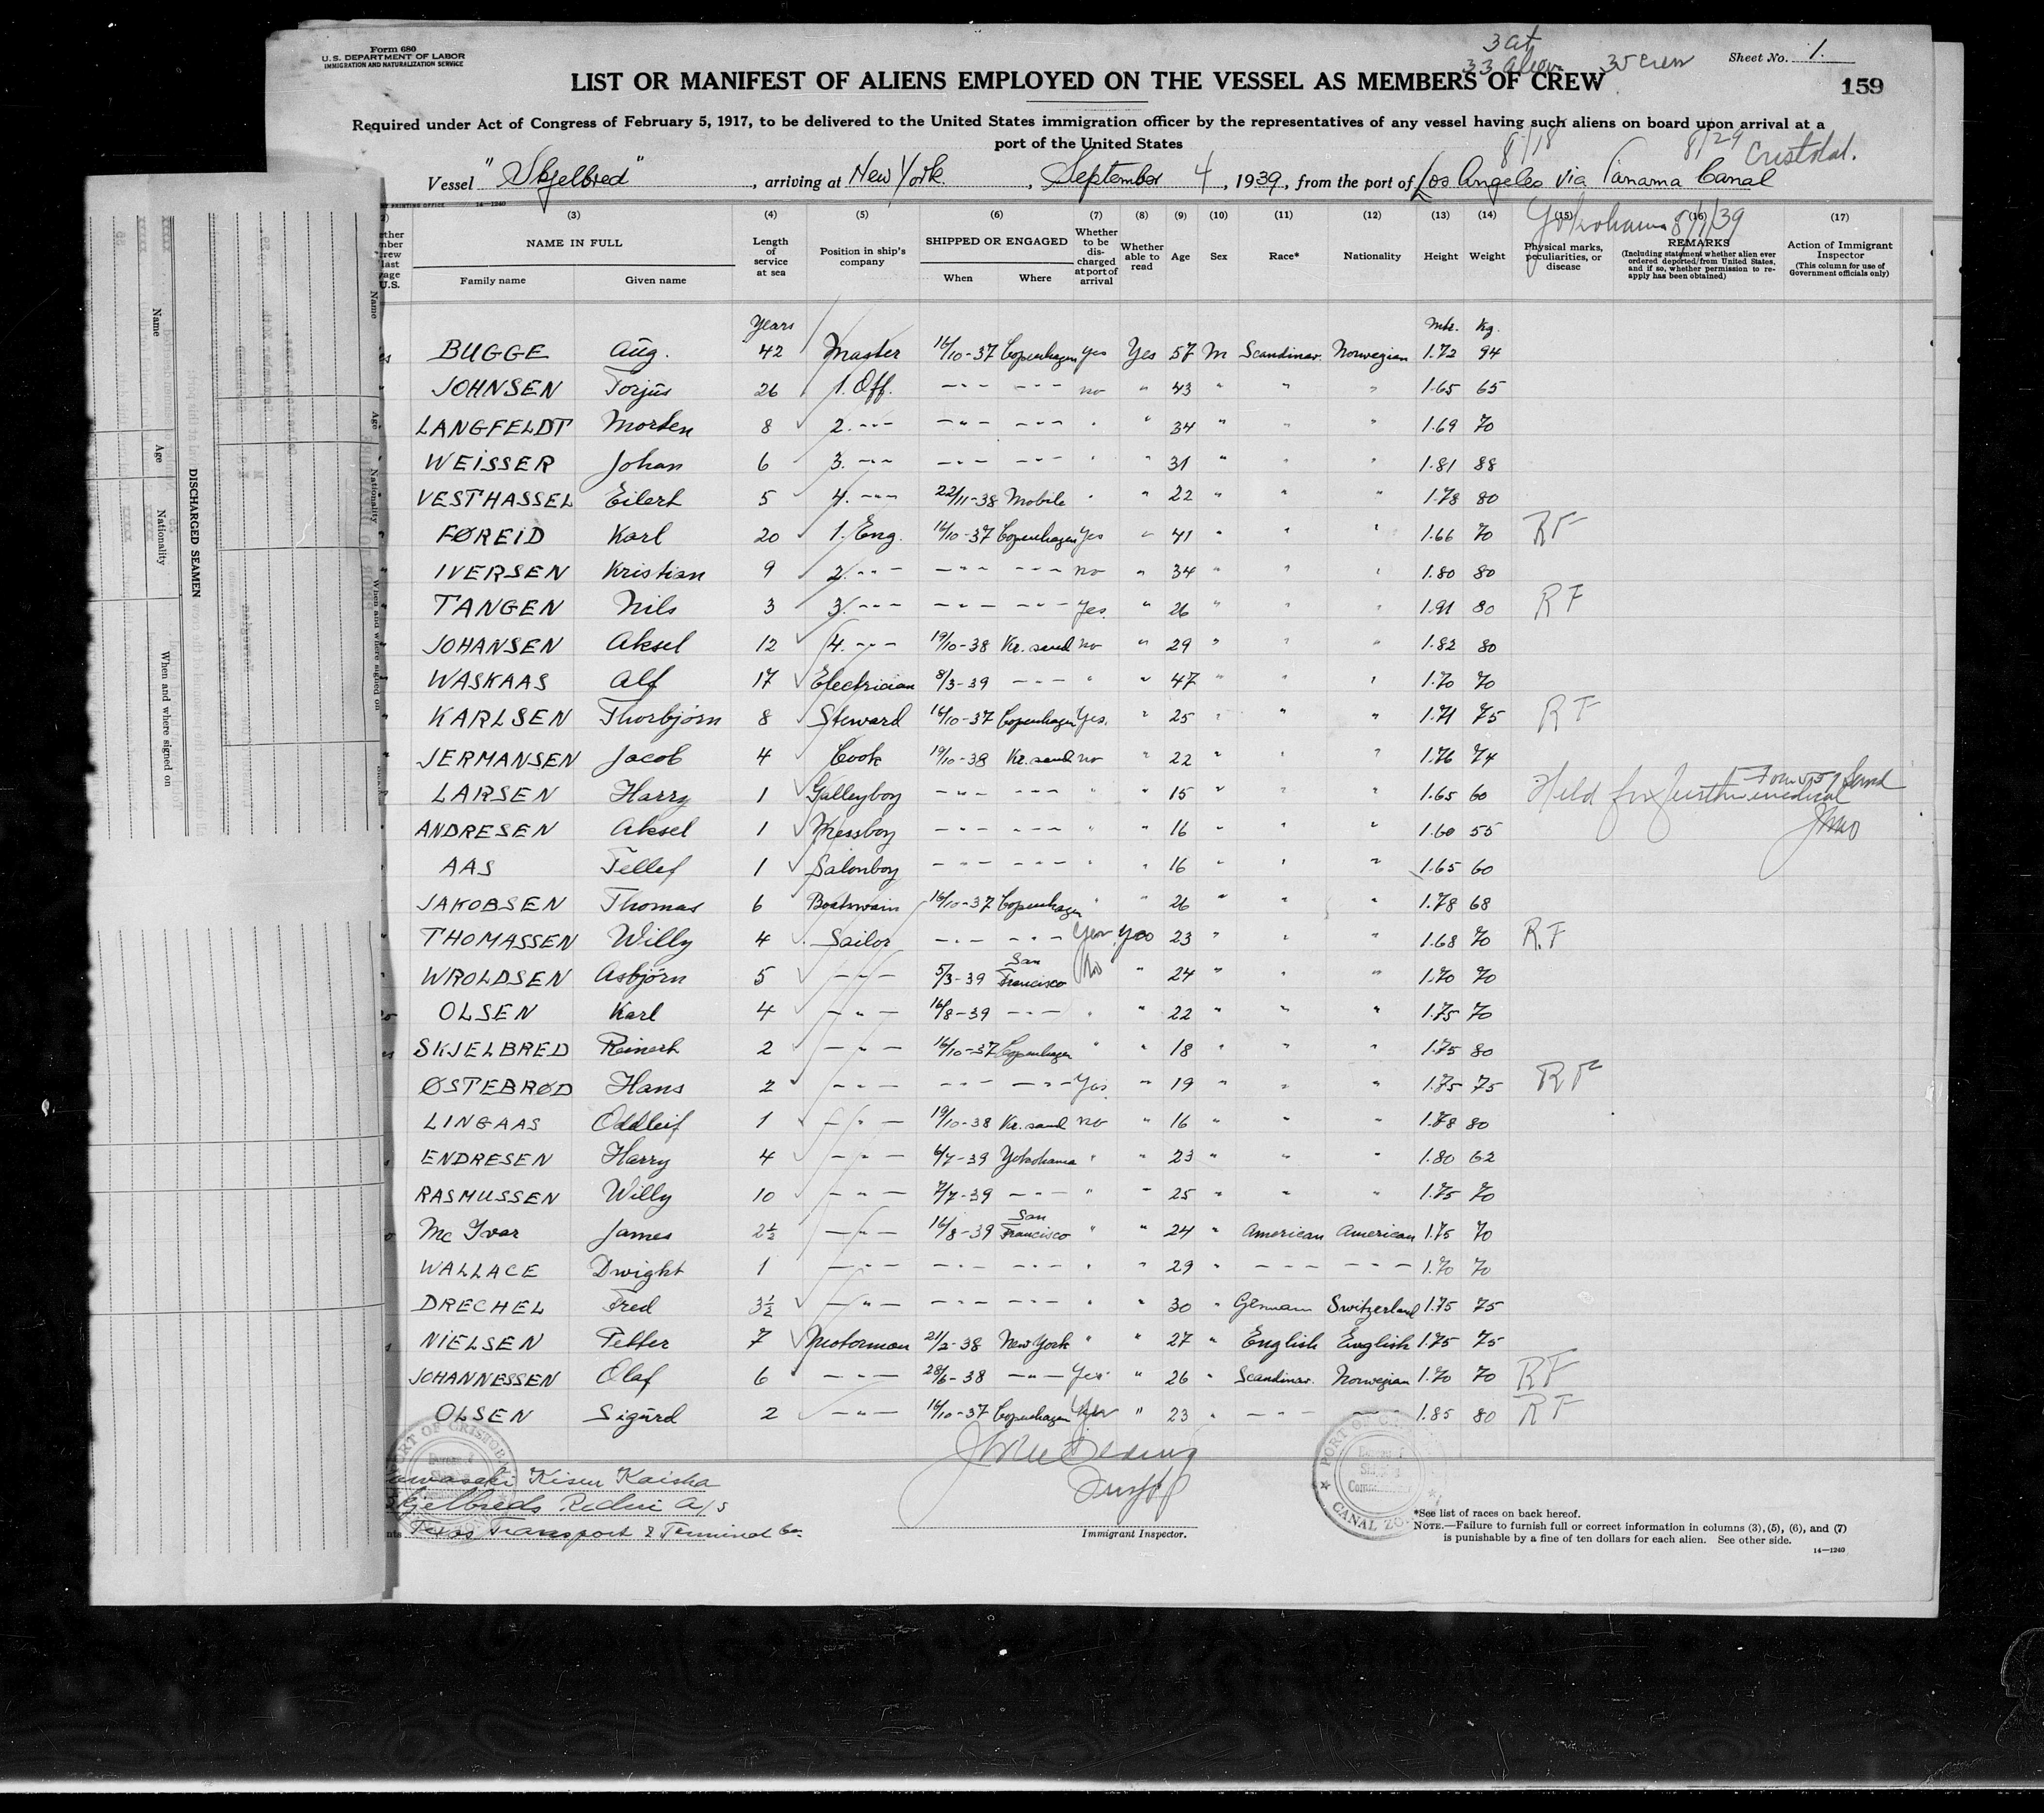 Form 680
U.S. DEPARTMENT OF LABOR
IMMIGRATION AND NATURALIZATION SERVICE
3 at
33 aliens 35 crew
Sheet No. 1.
LIST OR MANIFEST OF ALIENS EMPLOYED ON THE VESSEL AS MEMBERS OF CREW
159
Required under Act of Congress of February 5, 1917, to be delivered to the United States immigration officer by the representatives of any vessel having such aliens on board upon arrival at a
port of the United States
8/18 8/29 Cristobal.
Vessel "Skjelbred", arriving at New York., September 4, 1939, from the port of Los Angeles via Panama Canal
14—1240
Yokohama 8/1/39
(3) (4) (5) (6) (7) (8) (9) (10) (11) (12) (13) (14) (15) (16) (17)
NAME IN FULL
Family name Given name
Length of service at sea
Position in ship's company
SHIPPED OR ENGAGED
When Where
Whether to be discharged at port of arrival
Whether able to read
Age Sex Race* Nationality Height Weight
Physical marks, peculiarities, or disease
REMARKS
(Including statement whether alien ever ordered deported from United States, and if so, whether permission to reapply has been obtained)
Action of Immigrant Inspector
(This column for use of Government officials only)
Years Mtr. Kg.
BUGGE Aug. 42 Master 16/10-37 Copenhagen yes Yes 57 M Scandinav. Norwegian 1.72 94
JOHNSEN Torjus 26 1. Off. -"- -"- no " 43 " " " 1.65 65
LANGFELDT Morten 8 2. -"- -"- -"- " " 34 " " " 1.69 70
WEISSER Johan 6 3. -"- -"- -"- " " 31 " " " 1.81 88
VESTHASSEL Eilert 5 4. -"- 22/11-38 Mobile " " 22 " " " 1.78 80
FØREID Karl 20 1. Eng. 16/10-37 Copenhagen Yes " 41 " " " 1.66 70 RF
IVERSEN Kristian 9 2. -"- -"- -"- no " 34 " " " 1.80 80
TANGEN Nils 3 3. -"- -"- -"- Yes. " 26 " " " 1.91 80 RF
JOHANSEN Aksel 12 4. -"- 19/10-38 Kr. sand no " 29 " " " 1.82 80
WASKAAS Alf 17 Electrician 8/3-39 -"- " " 47 " " " 1.70 70
KARLSEN Thorbjörn 8 Steward 16/10-37 Copenhagen Yes. " 25 " " " 1.71 75 RF
JERMANSEN Jacob 4 Cook 19/10-38 Kr. sand no " 22 " " " 1.76 74
LARSEN Harry 1 Galleyboy -"- -"- " " 15 " " " 1.65 60 Held for further medical
ANDRESEN Aksel 1 Messboy -"- -"- " " 16 " " " 1.60 55
AAS Tellef 1 Salonboy -"- -"- " " 16 " " " 1.65 60
JAKOBSEN Thomas 6 Boatswain 16/10-37 Copenhagen " " 26 " " " 1.78 68
THOMASSEN Willy 4 Sailor -"- -"- Yes Yes 23 " " " 1.68 70 R.F
WROLDSEN Asbjörn 5 -"- 5/3-39 San Francisco No " 24 " " " 1.70 70
OLSEN Karl 4 -"- 16/8-39 -"- " " 22 " " " 1.75 70
SKJELBRED Reinert 2 -"- 16/10-37 Copenhagen " " 18 " " " 1.75 80
ØSTEBRØD Hans 2 -"- -"- -"- Yes " 19 " " " 1.75 75 RF
LINGAAS Oddleif 1 -"- 19/10-38 Kr. sand no " 16 " " " 1.78 80
ENDRESEN Harry 4 -"- 6/7-39 Yokohama " " 23 " " " 1.80 62
RASMUSSEN Willy 10 -"- 7/7-39 -"- " " 25 " " " 1.75 70
Mc Ivar James 2½ -"- 16/8-39 San Francisco " " 24 " American American 1.75 70
WALLACE Dwight 1 -"- -"- -"- " " 29 " -"- -"- 1.70 70
DRECHEL Fred 3½ -"- -"- -"- " " 30 " German Switzerland 1.75 75
NIELSEN Petter 7 Motorman 21/2-38 New York " " 27 " English English 1.75 75
JOHANNESSEN Olaf 6 -"- 28/6-38 -"- Yes " 26 " Scandinav. Norwegian 1.70 70 RF
OLSEN Sigurd 2 -"- 16/10-37 Copenhagen Yes " 23 " -"- -"- 1.85 80 RF
Kisen Kaisha
Skjelbreds Rederi A/S
Texas Transport & Terminal Co.
Immigrant Inspector.
PORT OF CRISTOBAL
CANAL ZONE
*See list of races on back hereof.
NOTE.—Failure to furnish full or correct information in columns (3), (5), (6), and (7)
is punishable by a fine of ten dollars for each alien. See other side.
14—1240
DISCHARGED SEAMEN
Name Age Nationality When and where signed on